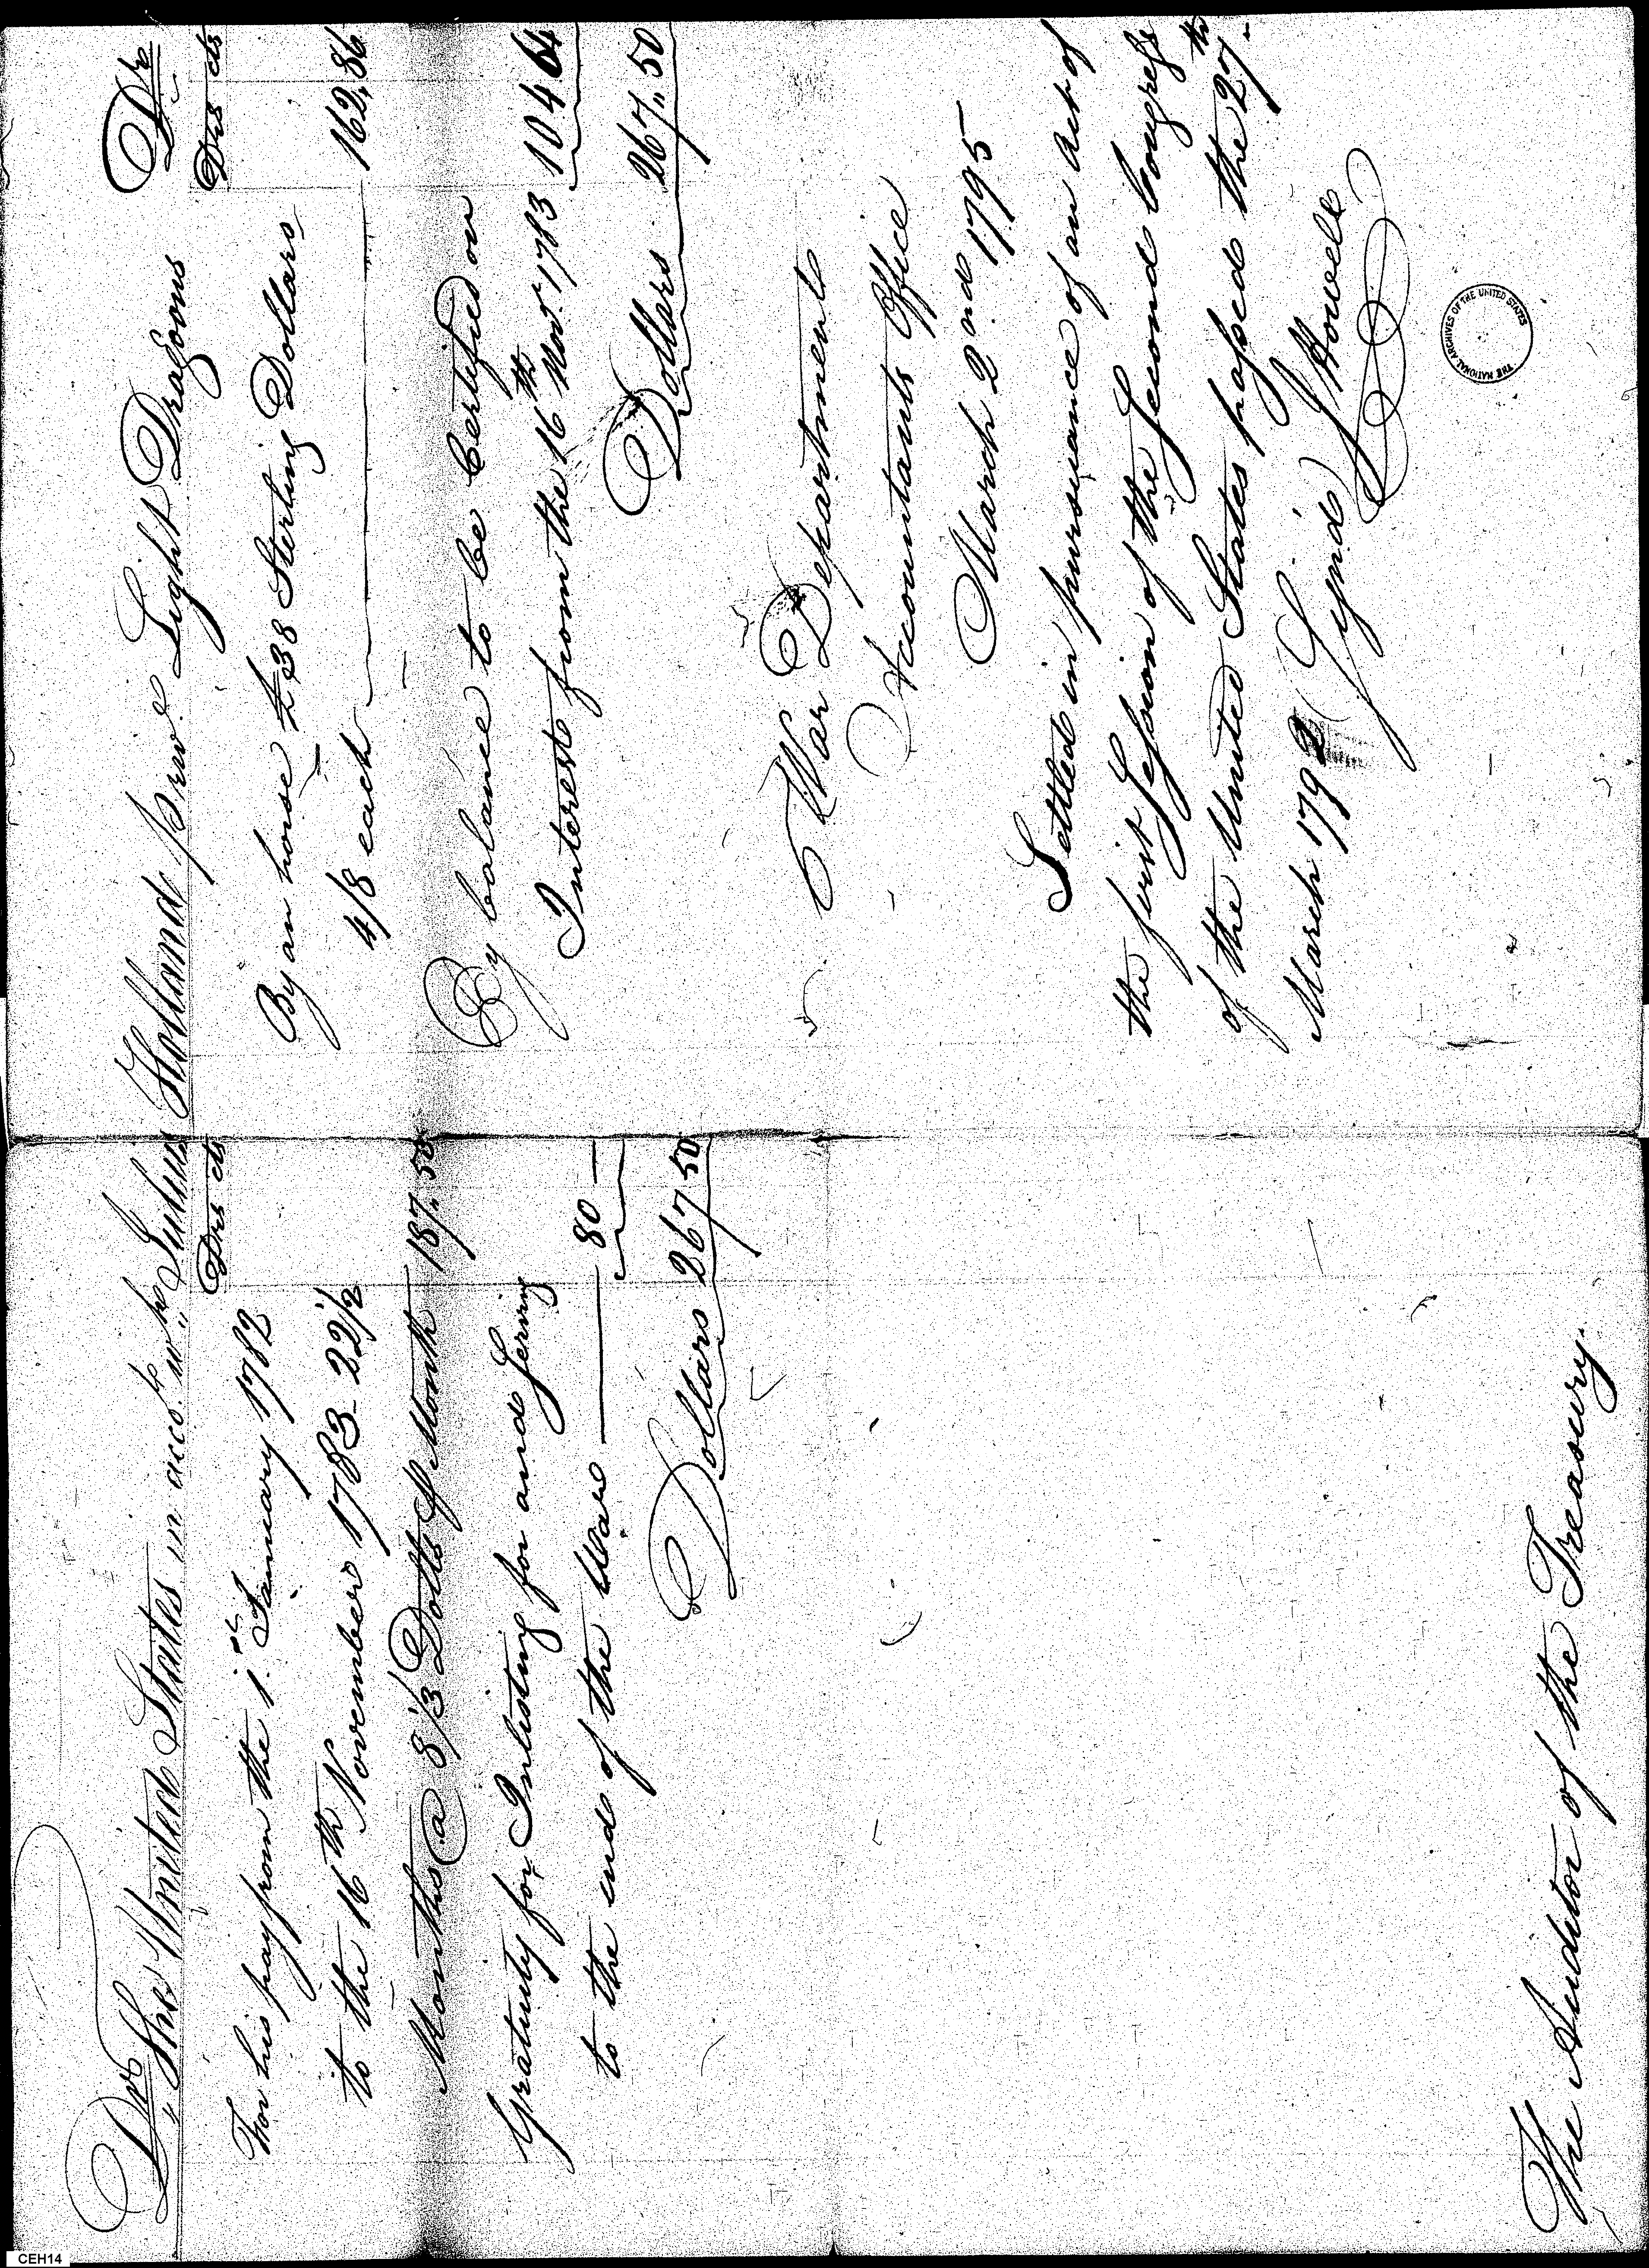 Dr The United States in acco.t w.th Julius Holland priv.e Light Dragoons Cr
Drs cts
For his pay from the 1.st January 1782
to the 16th November 1783 22 1/2
Months @ 8 1/3 Dolls p Month 187.50
Gratuity for Inlisting for and serving
to the end of the War 80 —
Dollars 267 50
The Auditor of the Treasury.
Drs cts
By an horse £38 Sterling Dollars
4/8 each 162.86
By balance to be Certified on
Interest from the 16th Nov.r 1783 104 64
Dollars 267.50
War Department
Accountants Office
March 2nd 1795
Settled in pursuance of an act of
the first Session of the Second Congress
of the United States passed the 27th
March 1792 (Signd) J Howell
THE NATIONAL ARCHIVES OF THE UNITED STATES
CEH14